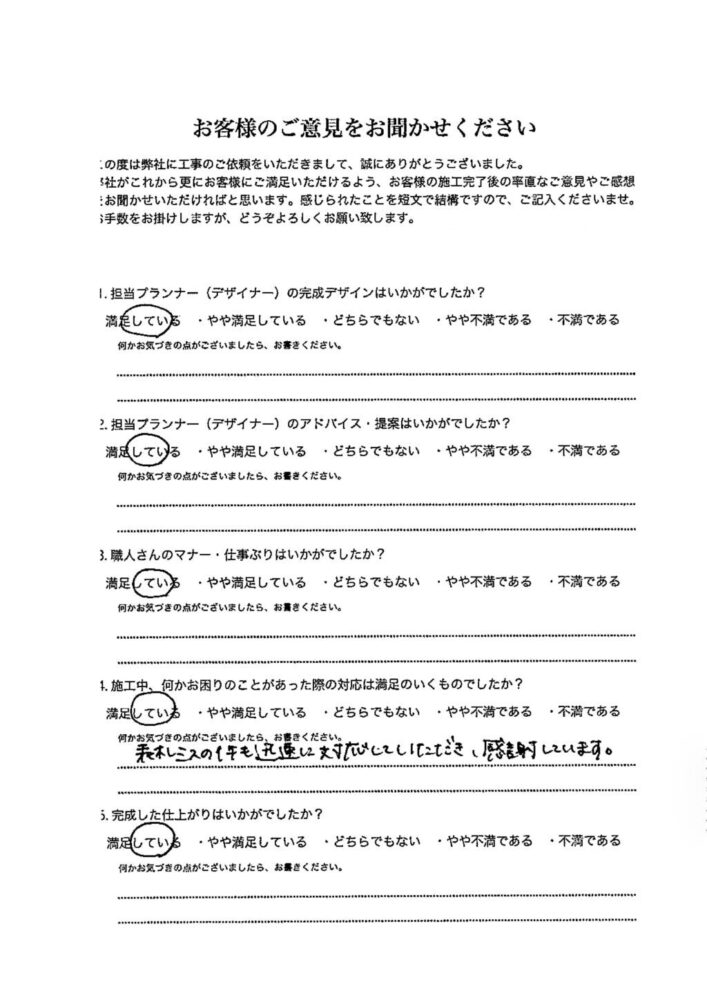 お客様のご意見をお聞かせください
の度は弊社に工事のご依頼をいただきまして、誠にありがとうございました。
社がこれから更にお客様にご満足いただけるよう、お客様の施工完了後の率直なご意見やご感想
お聞かせいただければと思います。感じられたことを短文で結構ですので、ご記入くださいませ。
手数をお掛けしますが、どうぞよろしくお願い致します。
1. 担当プランナー（デザイナー）の完成デザインはいかがでしたか？
満足している ・やや満足している ・どちらでもない ・やや不満である ・不満である
何かお気づきの点がございましたら、お書きください。
2. 担当プランナー（デザイナー）のアドバイス・提案はいかがでしたか？
満足している ・やや満足している ・どちらでもない ・やや不満である ・不満である
何かお気づきの点がございましたら、お書きください。
3. 職人さんのマナー・仕事ぶりはいかがでしたか？
満足している ・やや満足している ・どちらでもない ・やや不満である ・不満である
何かお気づきの点がございましたら、お書きください。
4. 施工中、何かお困りのことがあった際の対応は満足のいくものでしたか？
満足している ・やや満足している ・どちらでもない ・やや不満である ・不満である
何かお気づきの点がございましたら、お書きください。
表札ミスの件も迅速に対応していただき、感謝しています。
5. 完成した仕上がりはいかがでしたか？
満足している ・やや満足している ・どちらでもない ・やや不満である ・不満である
何かお気づきの点がございましたら、お書きください。